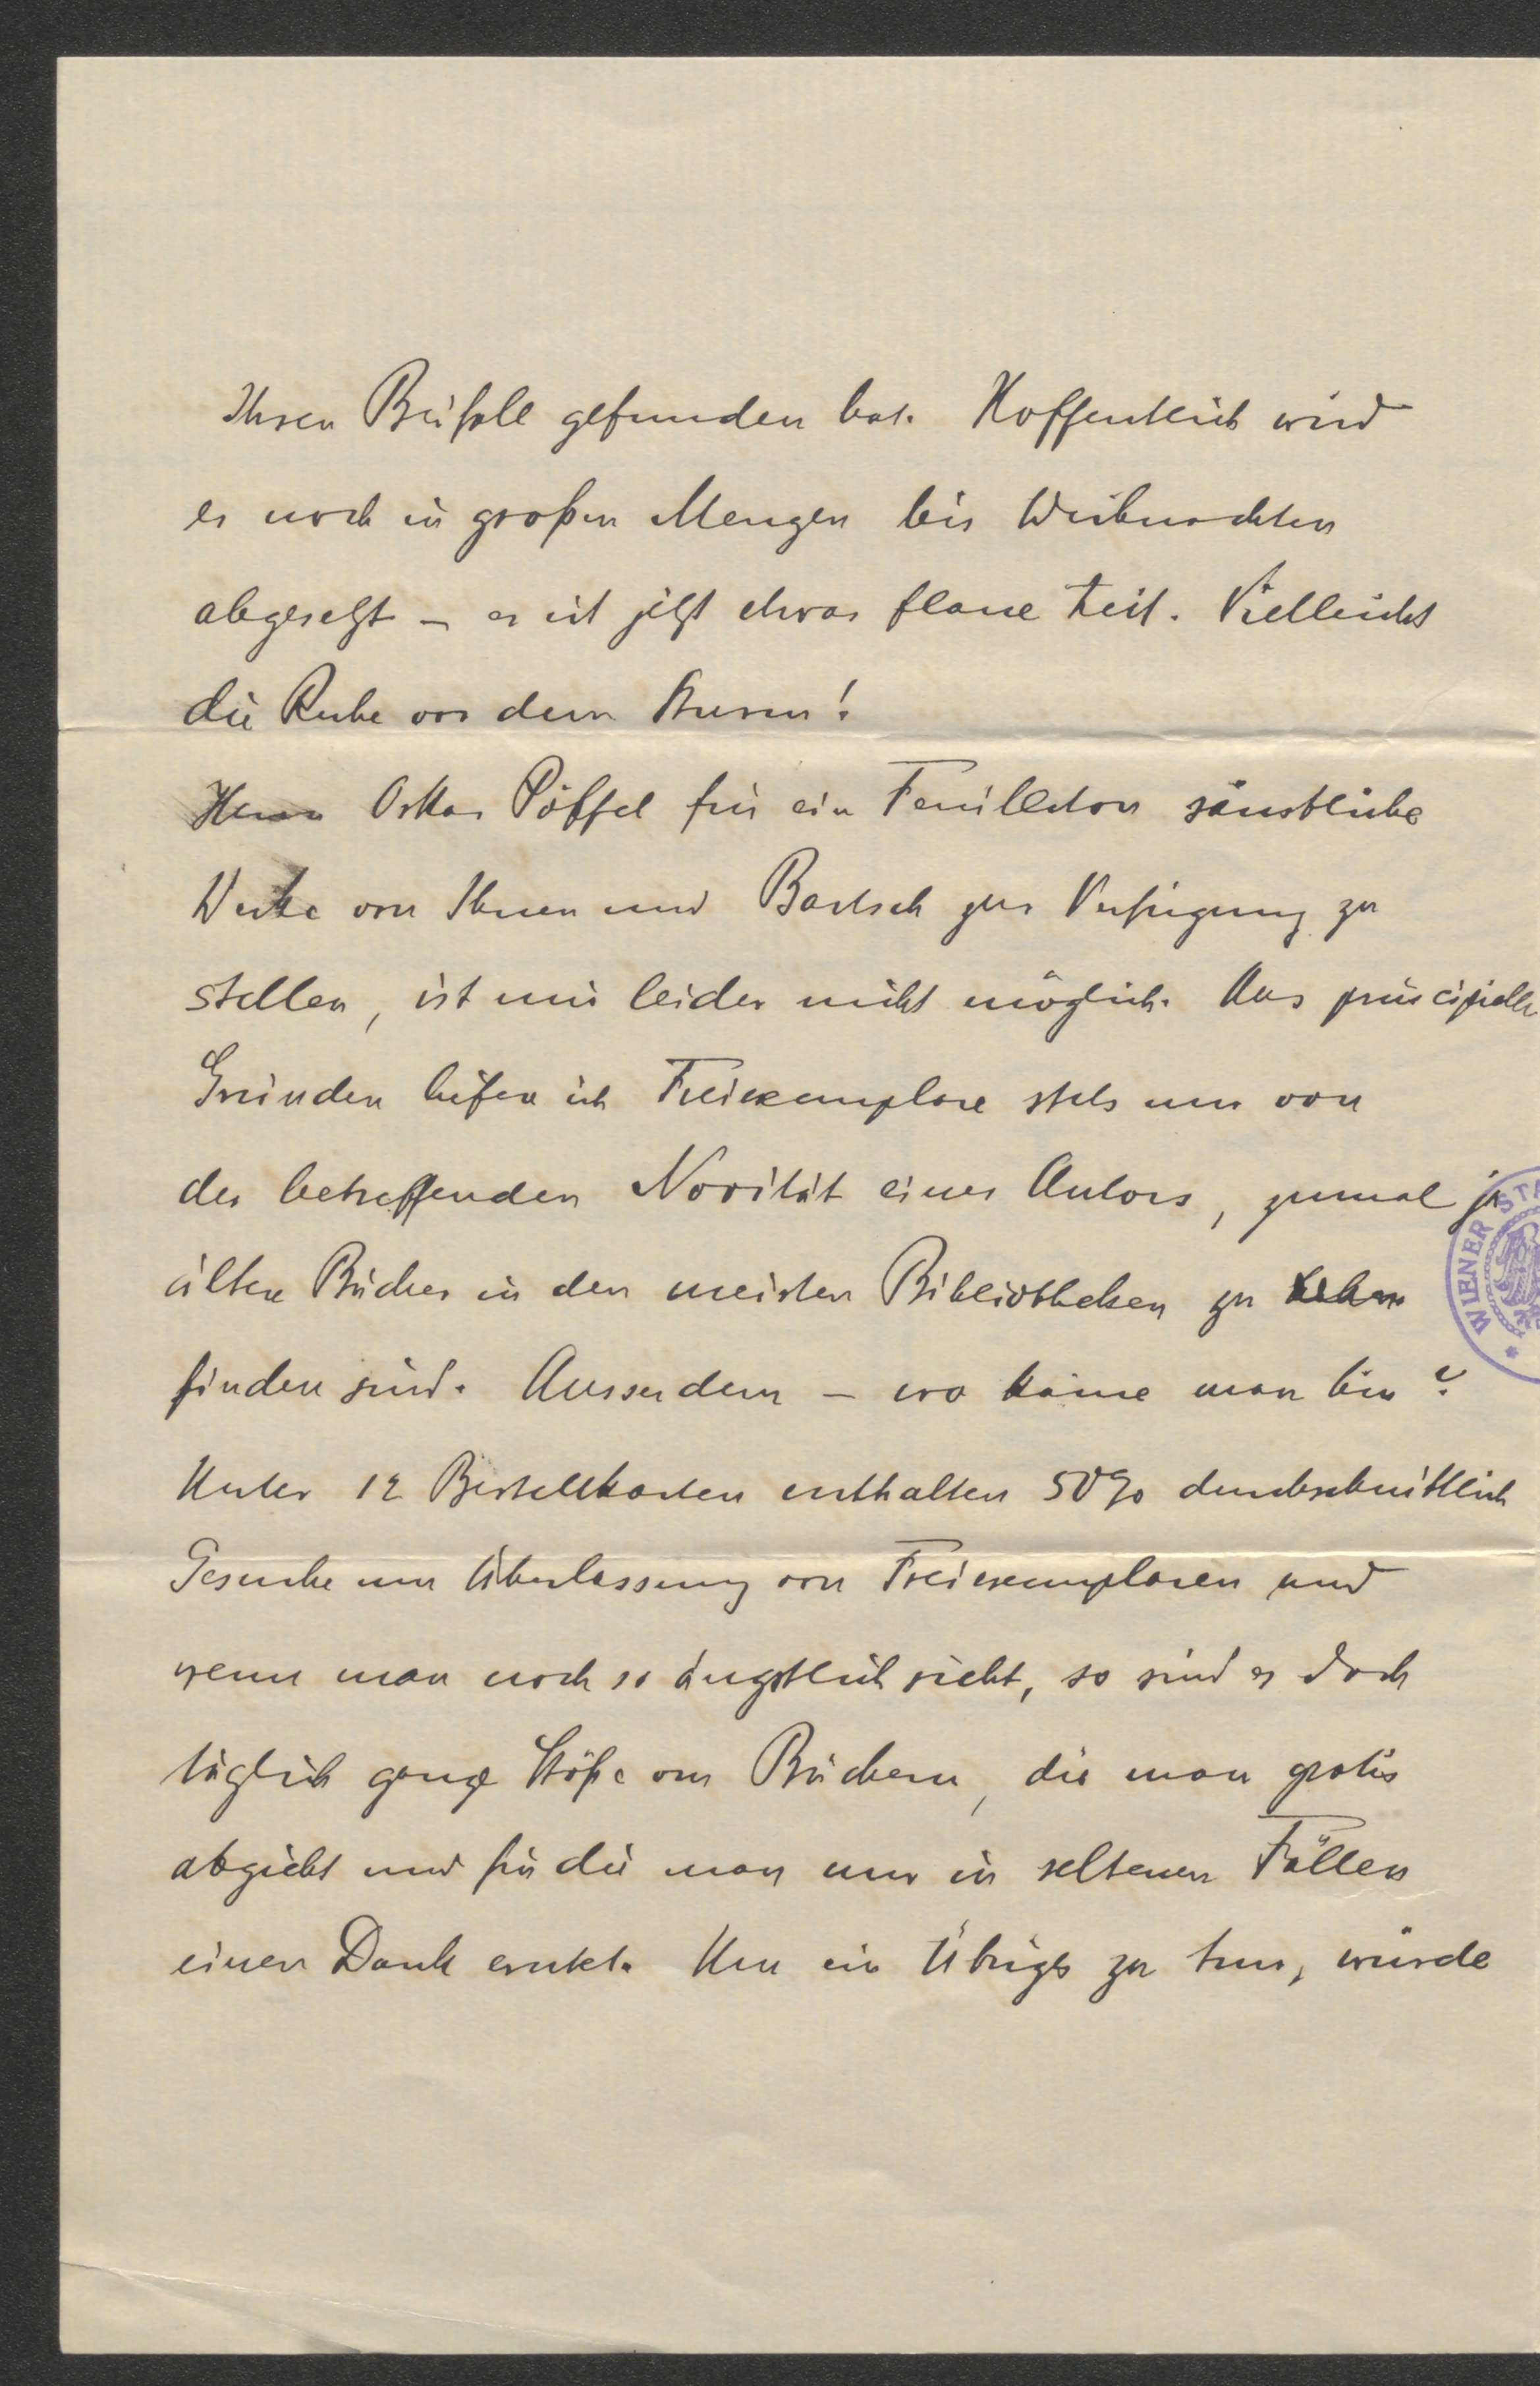 Ihren Beifall gefunden hat. Hoffentlich wird
es noch in großen Mengen bis Weihnachten
abgesetzt – es ist jetzt etwas flaue Zeit. Vielleicht
die Ruhe vor dem Sturm!
Herrn Oskar Pöffel für ein Feuilleton sämtliche
Werke von Ihnen und Bartsch zur Verfügung zu
stellen, ist mir leider nicht möglich. Aus principiellen
Gründen liefere ich Freiexemplare stets nur von
der betreffenden Novität eines Autors, zumal ja
ältere Bücher in den meisten Bibliotheken zu
finden sind. Ausserdem – wo käme man hin?
Unter 12 Bestellkarten enthalten 50% durchschnittlich
Gesuche um Überlassung von Freiexemplaren und
wenn man noch so ängstlich sieht, so sind es doch
täglich ganze Stöße von Büchern, die man gratis
abgiebt und für die man nur in seltenen Fällen
einen Dank erntet. Um ein Übriges zu tun, würde
WIENER ST